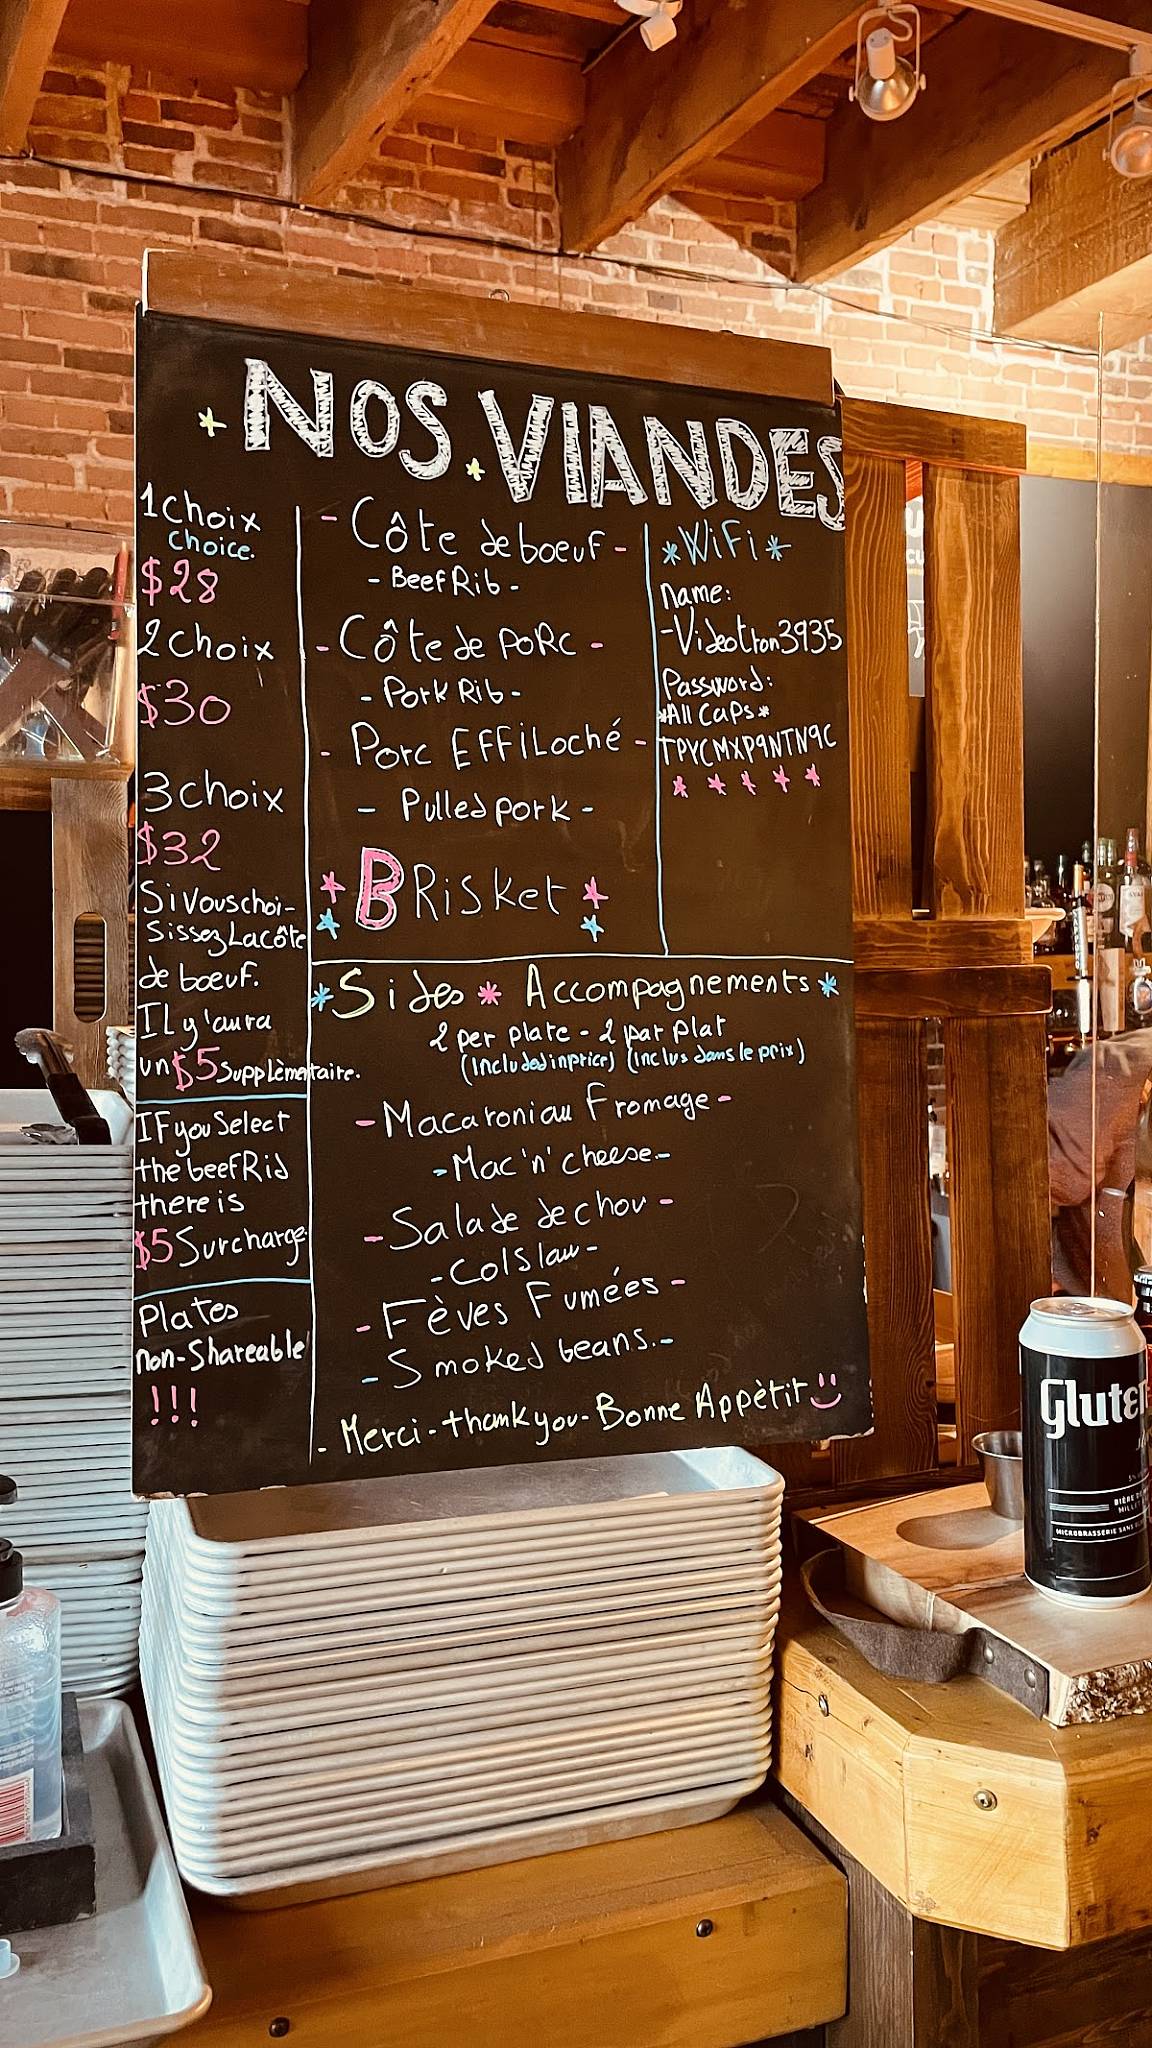 NOS VIANDES
1 choix
choice.
$28
2 choix
$30
3 choix
$32
Si vous choi-
sissez La côte
de boeuf.
IL y'aura
un $5 supplèmentaire.
IF you Select
the beef Rib
there is
$5 Surcharge.
Plates
non-Shareable
!!!
- Côte de boeuf -
- Beef Rib -
- Côte de PORC -
- Pork Rib -
- Porc EFFiLoché -
- Pulled pork -
BRisket
*WiFi*
name:
-Videotron3935
Password:
*All Caps*
TPYCMXP9NTN9C
*Sides * Accompagnements*
2 per plate - 2 par plat
(Included in price) (Inclus dans le prix)
- Macaroni au Fromage -
- Mac'n'cheese.-
- Salade de chou -
- Colslaw -
- Fèves Fumées -
- Smoked beans.-
- Merci - thank you - Bonne Appètit
Gluten
MICROBRASSERIE SANS